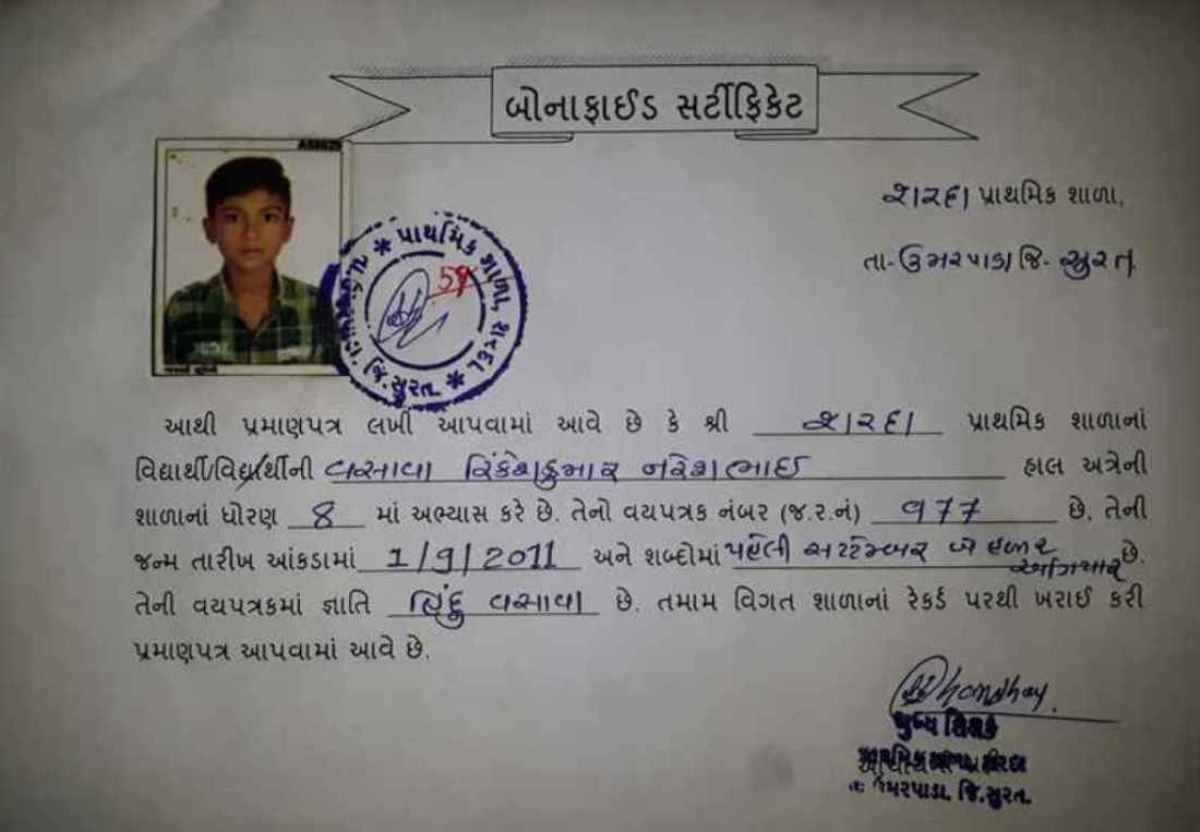 બોનાફાઈડ સર્ટીફિકેટ
શરદા પ્રાથમિક શાળા,
તા- ઉમરપાડા જિ- સુરત
પ્રાથમિક શાળા, શરદા
જિ. સુરત
59
આથી પ્રમાણપત્ર લખી આપવામાં આવે છે કે શ્રી શરદા પ્રાથમિક શાળાનાં
વિદ્યાર્થી/વિદ્યાર્થીની વસાવા રિંકેશકુમાર નરેશભાઈ હાલ અત્રેની
શાળાનાં ધોરણ 8 માં અભ્યાસ કરે છે. તેનો વયપત્રક નંબર (જ.ર.નં) ૧૭૭ છે. તેની
જન્મ તારીખ આંકડામાં 1/9/2011 અને શબ્દોમાં પહેલી સપ્ટેમ્બર બે હજાર અગિયાર છે.
તેની વયપત્રકમાં જ્ઞાતિ હિંદુ વસાવા છે. તમામ વિગત શાળાનાં રેકર્ડ પરથી ખરાઈ કરી
પ્રમાણપત્ર આપવામાં આવે છે.
મુખ્ય શિક્ષક
પ્રાથમિક
ઉમરપાડા, જિ.સુરત.